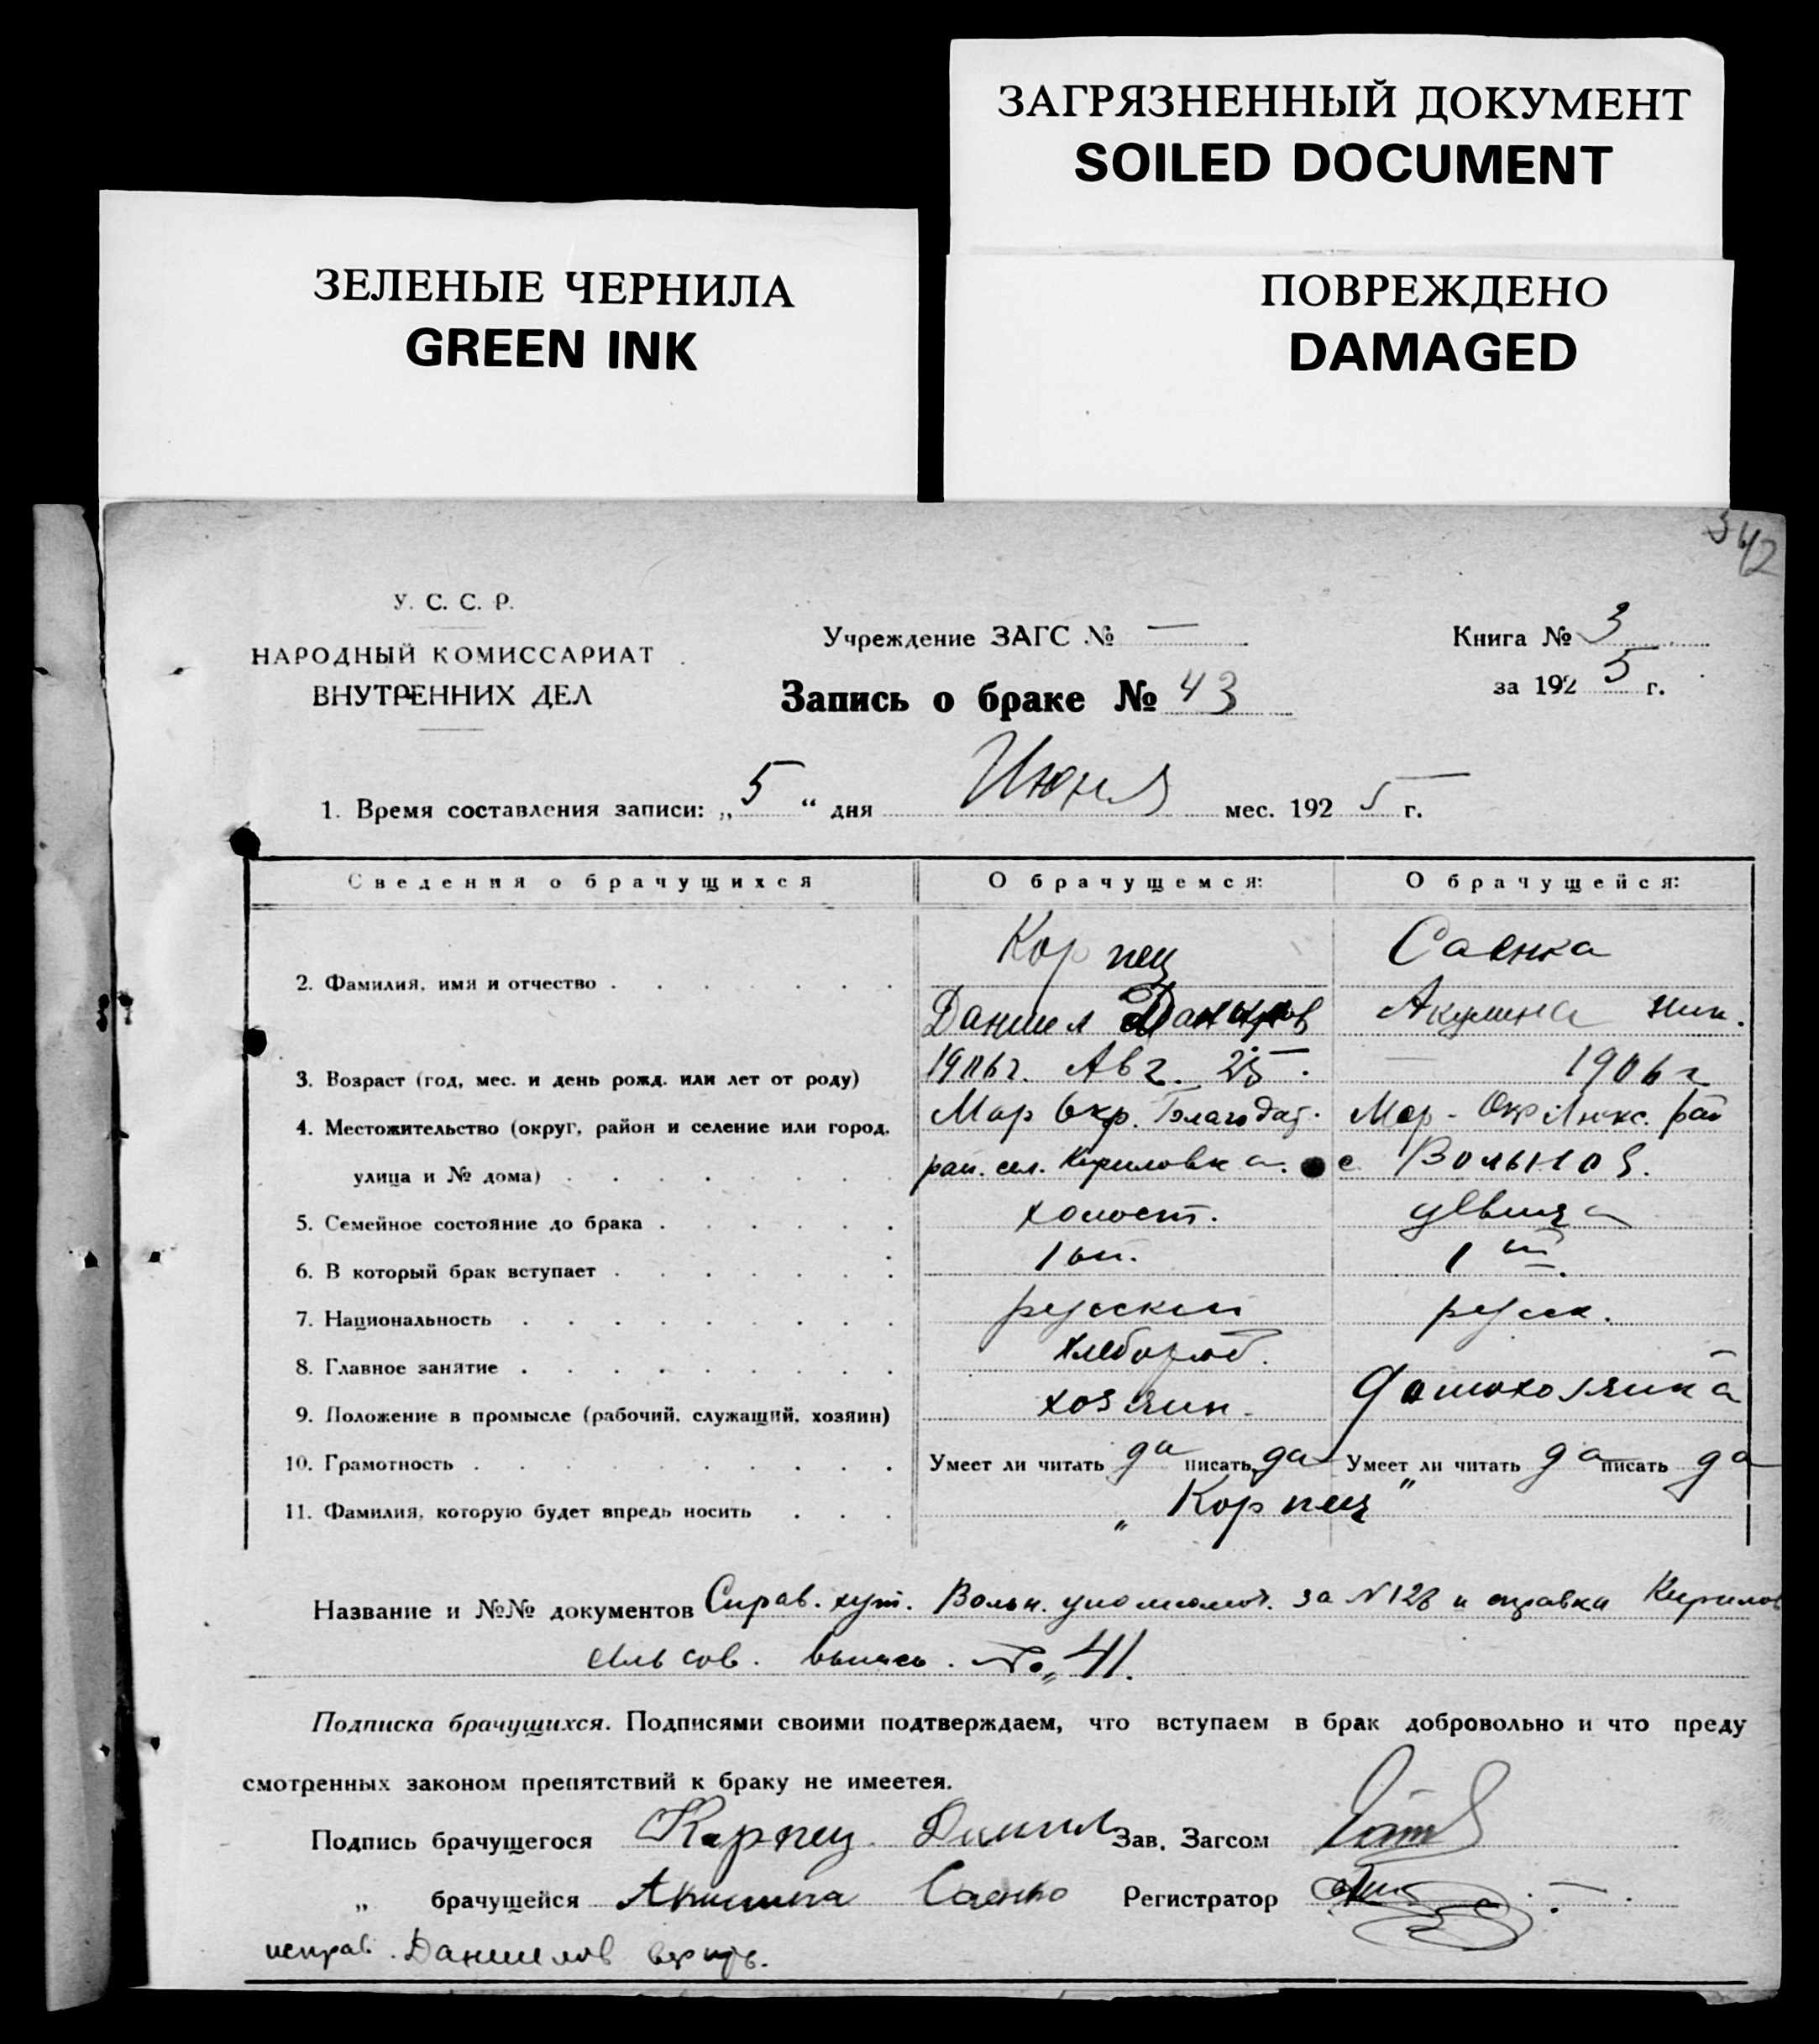 ЗАГРЯЗНЕННЫЙ ДОКУМЕНТ
SOILED DOCUMENT
ЗЕЛЕНЫЕ ЧЕРНИЛА
GREEN INK
ПОВРЕЖДЕНО
DAMAGED
342
У. С. С. Р.
НАРОДНЫЙ КОМИССАРИАТ
ВНУТРЕННИХ ДЕЛ
Учреждение ЗАГС № —
Запись о браке № 43
Книга № 3
за 1925 г.
1. Время составления записи: „5“ дня Июня мес. 1925 г.
Сведения о брачущихся О брачущемся: О брачущейся:
Корпец Саенка
2. Фамилия, имя и отчество
Даниил Акулина Ник.
3. Возраст (год, мес. и день рожд. или лет от роду) 1906 г. Авг. 25. — 1906 г
4. Местожительство (округ, район и селение или город, Мар Окр. Благодат. Мар - Окр Янис. рай
улица и № дома) рай. сел. Кириловка. с. Вольноя.
5. Семейное состояние до брака холост. девица
6. В который брак вступает 1 ый. 1 ый
7. Национальность русский русск.
8. Главное занятие хлебороб. —
9. Положение в промысле (рабочий, служащий, хозяин) хозяин. домохозяйка
10. Грамотность Умеет ли читать да писать да Умеет ли читать да писать да
11. Фамилия, которую будет впредь носить „Корпец“
Название и №№ документов Справ. хут. Вольн. уполномоч. за № 128 и справка Кирилов
сельсов. № 41.
Подписка брачущихся. Подписями своими подтверждаем, что вступаем в брак добровольно и что преду
смотренных законом препятствий к браку не имеется.
Подпись брачущегося Карпец Данил Зав. Загсом
„ брачущейся Акилина Саенко Регистратор
исправ. Даниилов верить.